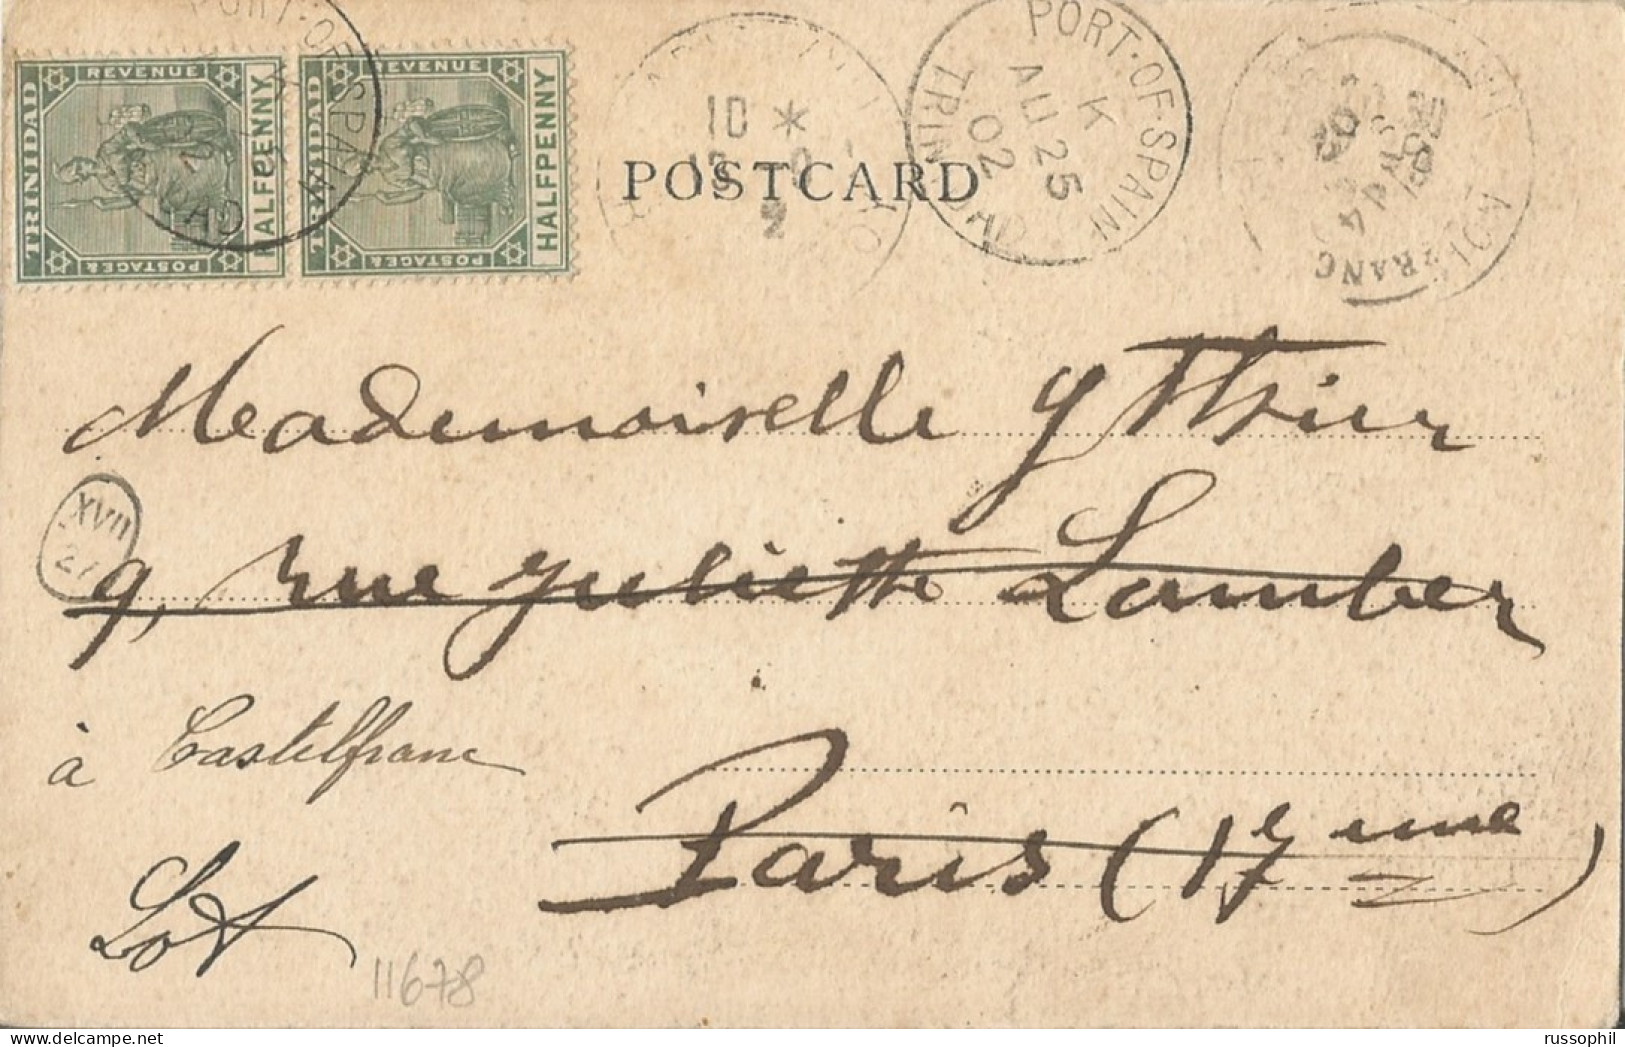 TRINIDAD
REVENUE
POSTAGE &
HALFPENNY
TRINIDAD
REVENUE
POSTAGE &
HALFPENNY
PORT·OF·SPAIN
10 *
2
PORT·OF·SPAIN
K
AU 25
02
TRINIDAD
POSTCARD
Mademoiselle Y Thsier
XVII
9, rue Juliette Lamber
à Castelfranc
Paris (17eme)
Lot
11678
russophil